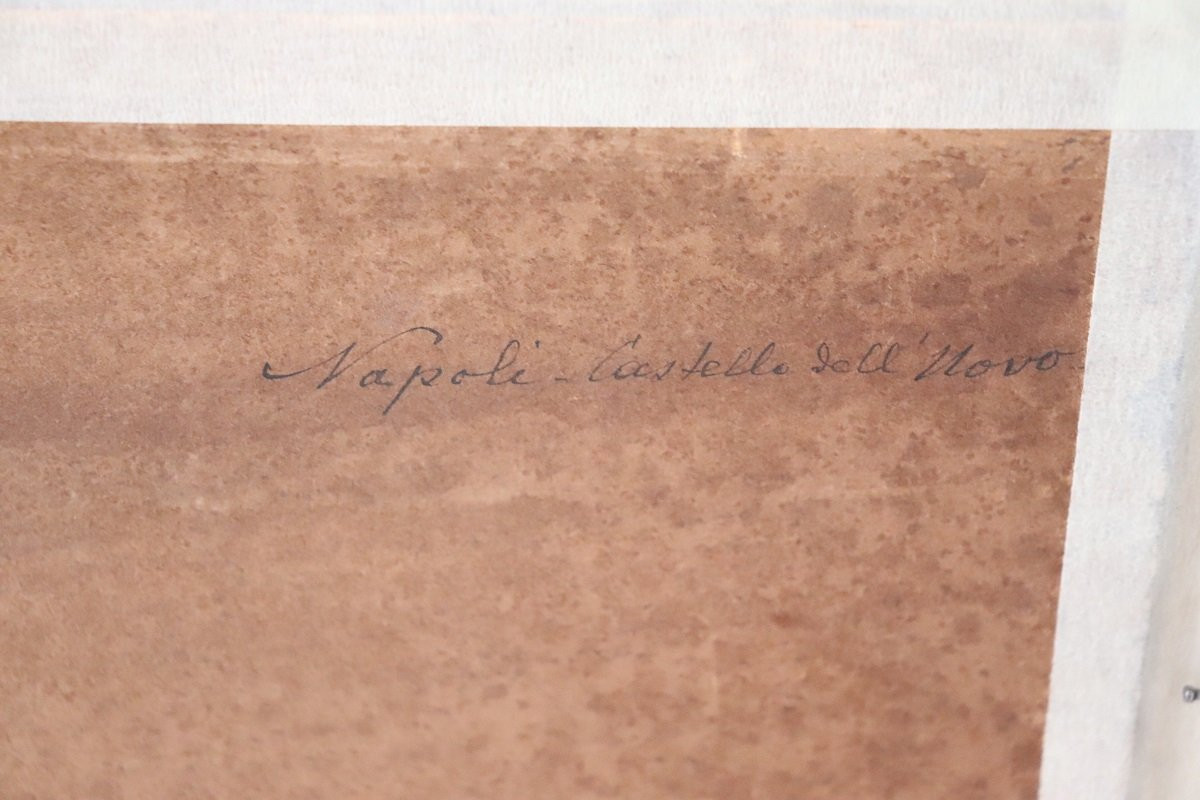 Napoli - Castello dell'Uovo -